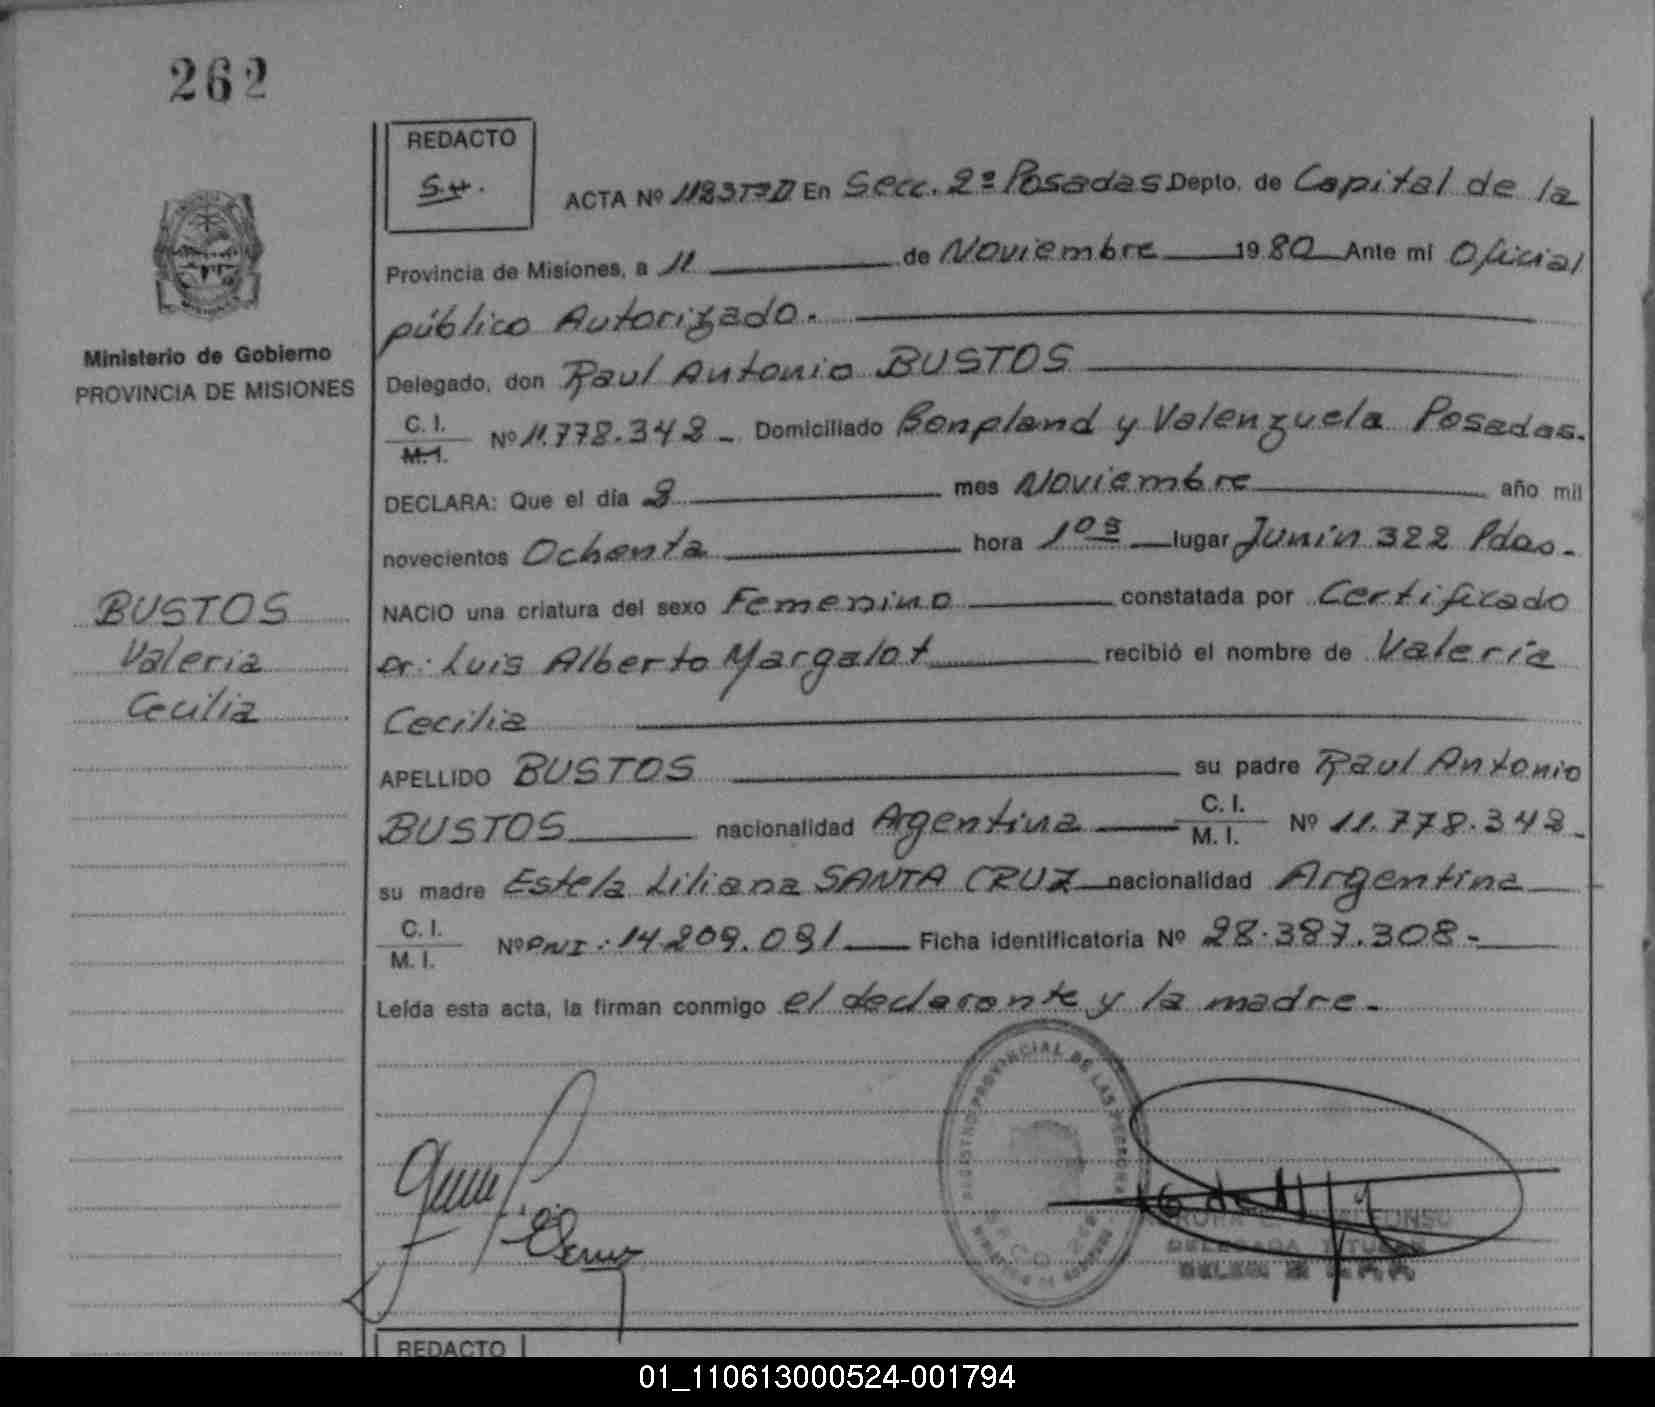 262
REDACTO
S.H.
ACTA Nº 1123TºII En Secc. 2ª Posadas Depto. de Capital de la
Provincia de Misiones, a 11 de Noviembre 1980 Ante mi Oficial
público Autorizado.
Ministerio de Gobierno
PROVINCIA DE MISIONES
Delegado, don Raul Antonio BUSTOS
C. I.
M. I.
Nº 11.778.348 Domiciliado Bonpland y Valenzuela Posadas.
DECLARA: Que el día 8 mes Noviembre año mil
novecientos Ochenta hora 10ª lugar Junín 322 Pdas.
NACIO una criatura del sexo Femenino constatada por Certificado
BUSTOS
Valeria
Cecilia
Dr: Luis Alberto Margalot recibió el nombre de Valeria
Cecilia
APELLIDO BUSTOS su padre Raul Antonio
BUSTOS nacionalidad Argentina C. I.
M. I. Nº 11.778.348
su madre Estela Liliana SANTA CRUZ nacionalidad Argentina
C. I.
M. I. Nº DNI: 14.209.091 Ficha identificatoria Nº 28.387.308
Leída esta acta, la firman conmigo el declarante y la madre.
REGISTRO PROVINCIAL DE LAS PERSONAS
DELEGADA TITULAR
REDACTO
01_110613000524-001794